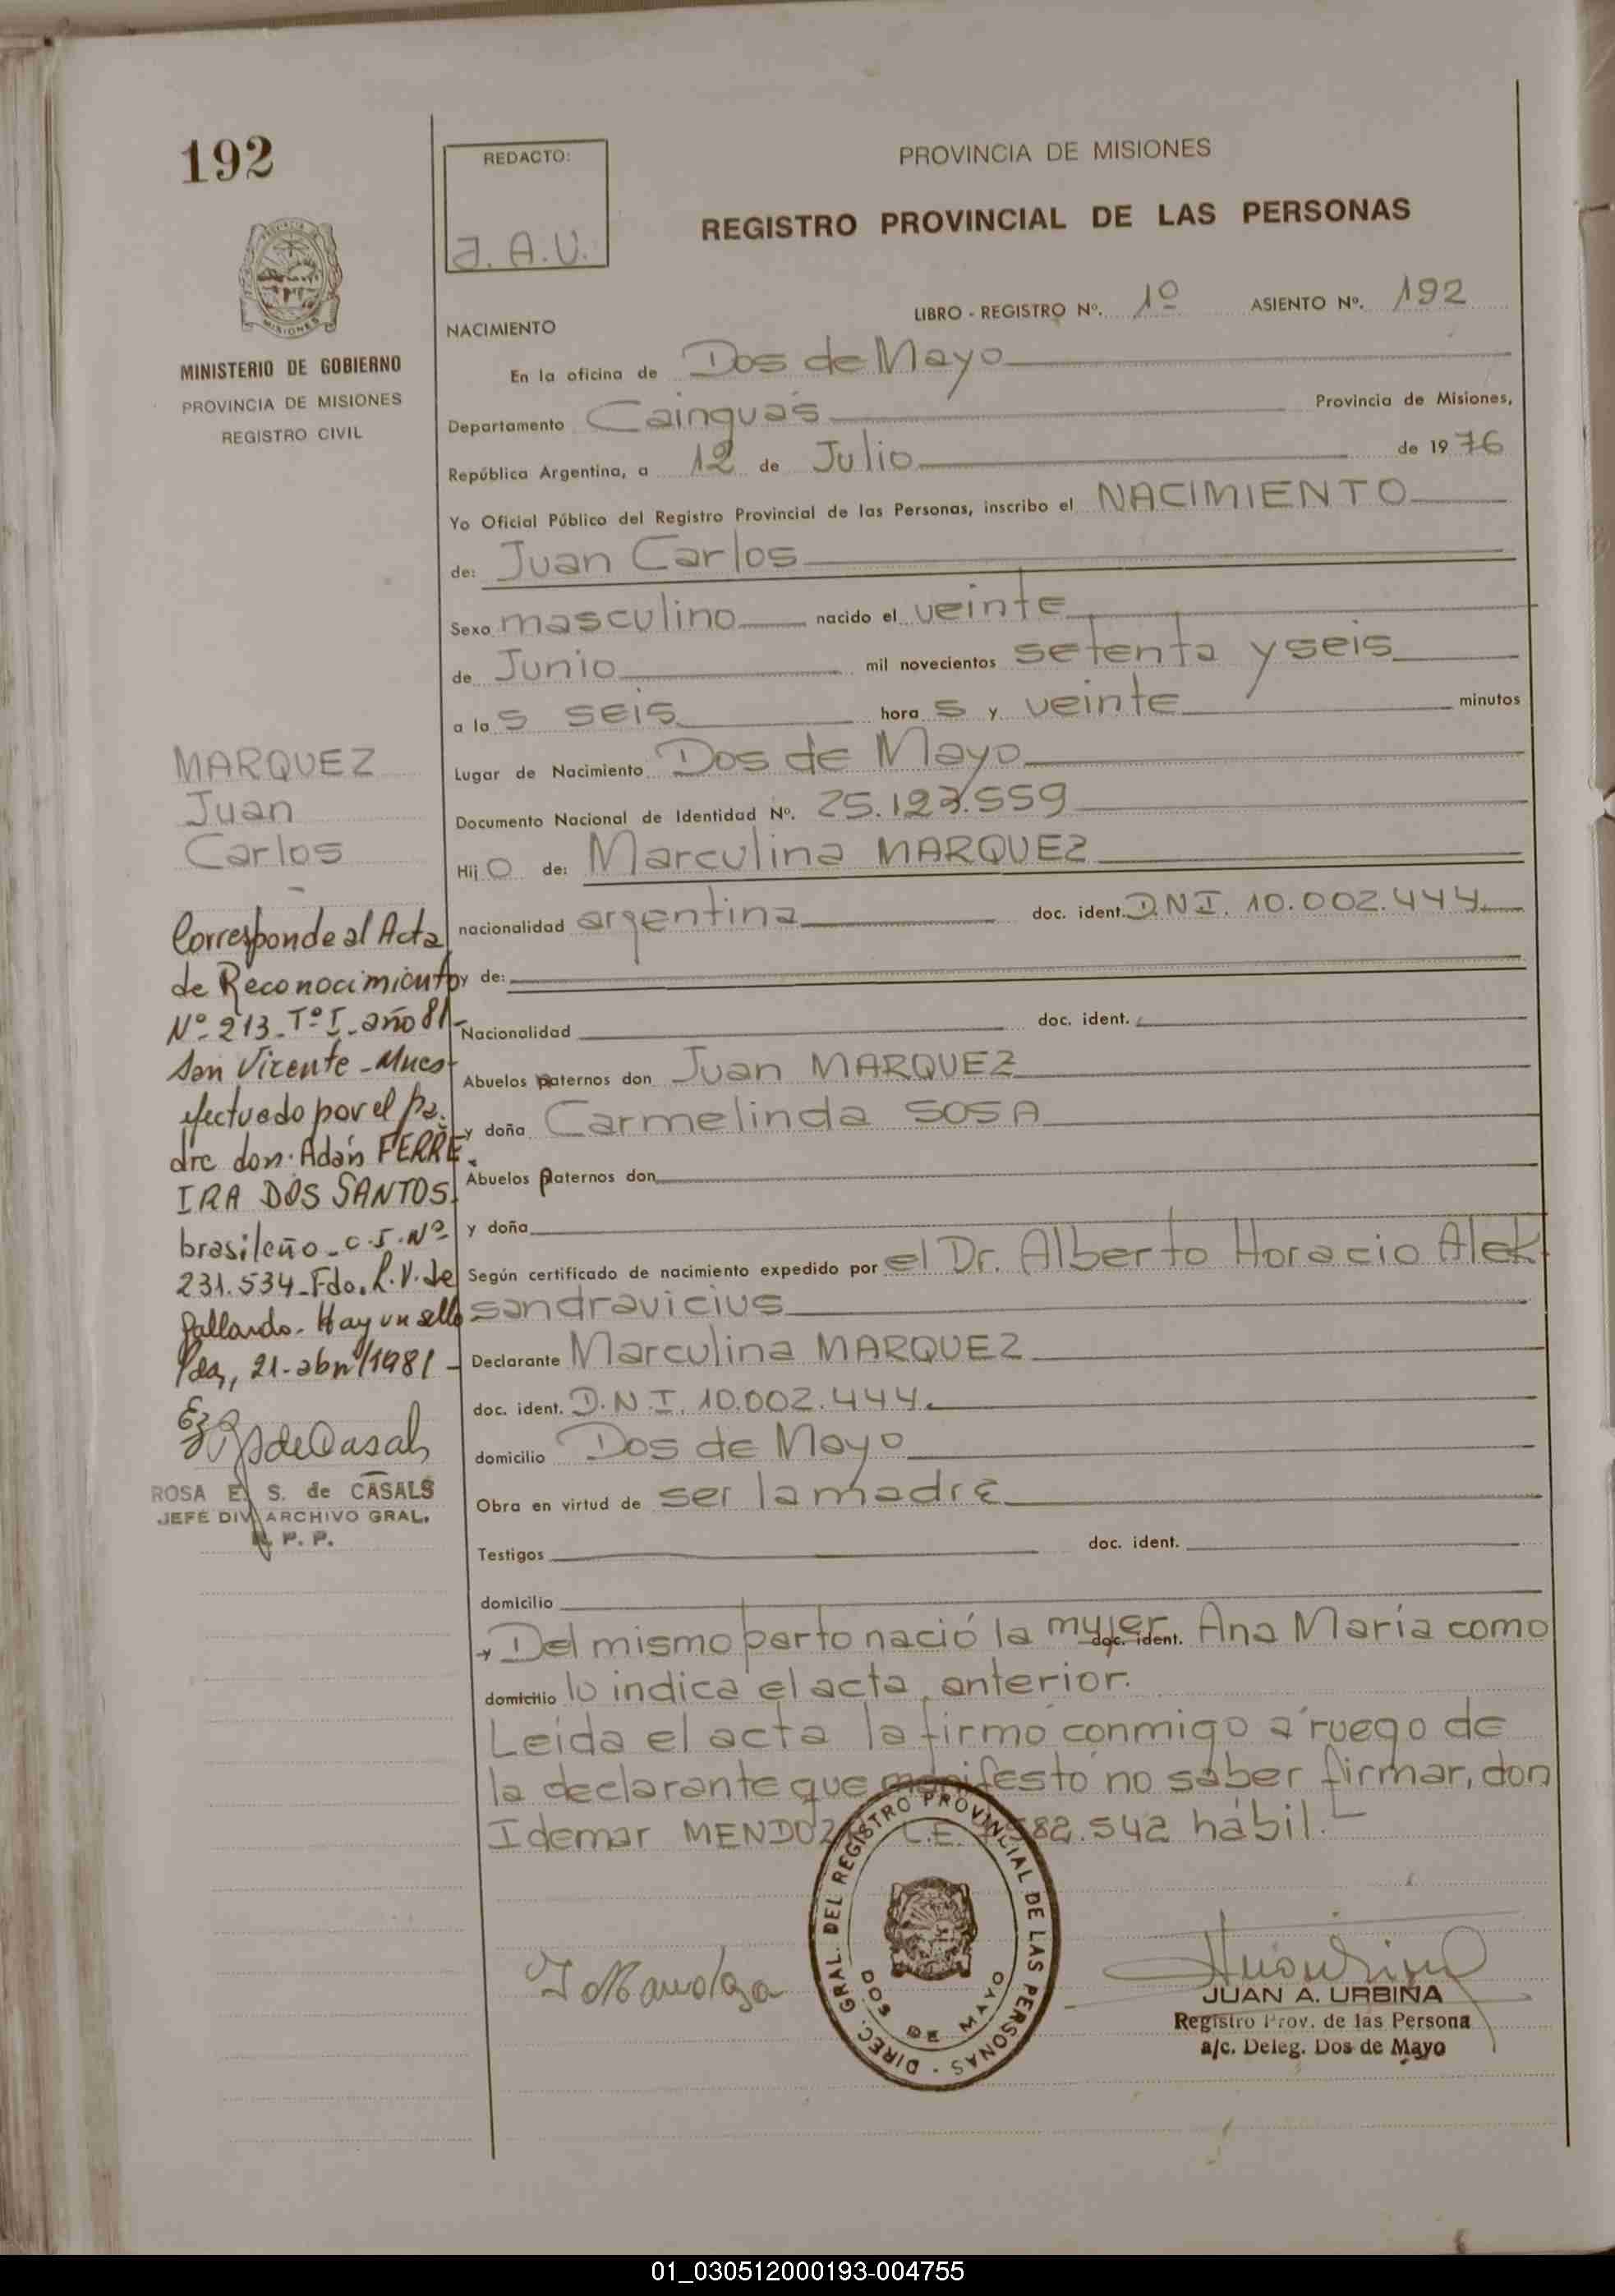 192
REDACTO:
J. A. U.
PROVINCIA DE MISIONES
REGISTRO PROVINCIAL DE LAS PERSONAS
MISIONES
MINISTERIO DE GOBIERNO
PROVINCIA DE MISIONES
REGISTRO CIVIL
LIBRO - REGISTRO Nº. 1º ASIENTO Nº. 192
NACIMIENTO
En la oficina de Dos de Mayo
Departamento Cainguás Provincia de Misiones,
República Argentina, a 12 de Julio de 1976
Yo Oficial Público del Registro Provincial de las Personas, inscribo el NACIMIENTO
de: Juan Carlos
Sexo masculino nacido el veinte
de Junio mil novecientos setenta y seis
a las seis horas y veinte minutos
Lugar de Nacimiento Dos de Mayo
Documento Nacional de Identidad Nº. 25.123.559
Hijo de: Marculina MARQUEZ
nacionalidad argentina doc. ident. D.N.I. 10.002.444.
y de:
Nacionalidad doc. ident.
Abuelos paternos don Juan MARQUEZ
y doña Carmelinda SOSA
Abuelos paternos don
y doña
Según certificado de nacimiento expedido por el Dr. Alberto Horacio Alek
sandravicius
Declarante Marculina MARQUEZ
doc. ident. D.N.I. 10.002.444.
domicilio Dos de Mayo
Obra en virtud de ser la madre
Testigos doc. ident.
domicilio
y Del mismo parto nació la mujer doc. ident. Ana María como
domicilio lo indica el acta anterior.
Leída el acta la firmó conmigo a ruego de
la declarante que manifestó no saber firmar, don
Idemar MENDOZA L.E. 582.542 hábil.
MARQUEZ
Juan
Carlos
Corresponde al Acta
de Reconocimiento
Nº 213 - Tº I - año 81 -
San Vicente - Mnes -
efectuado por el pa.
dre don Adán FERRE
IRA DOS SANTOS.
brasileño - C.I. Nº
231.534 - Fdo. R.V. de
Gallardo. Hay un sello
Pdas, 21 - abril/1981 -
ROSA E. S. de CASALS
JEFE DIV. ARCHIVO GRAL.
R. P. P.
DIREC. GRAL. DEL REGISTRO PROVINCIAL DE LAS PERSONAS -
DOS DE MAYO
JUAN A. URBINA
Registro Prov. de las Persona
a/c. Deleg. Dos de Mayo
01_030512000193-004755